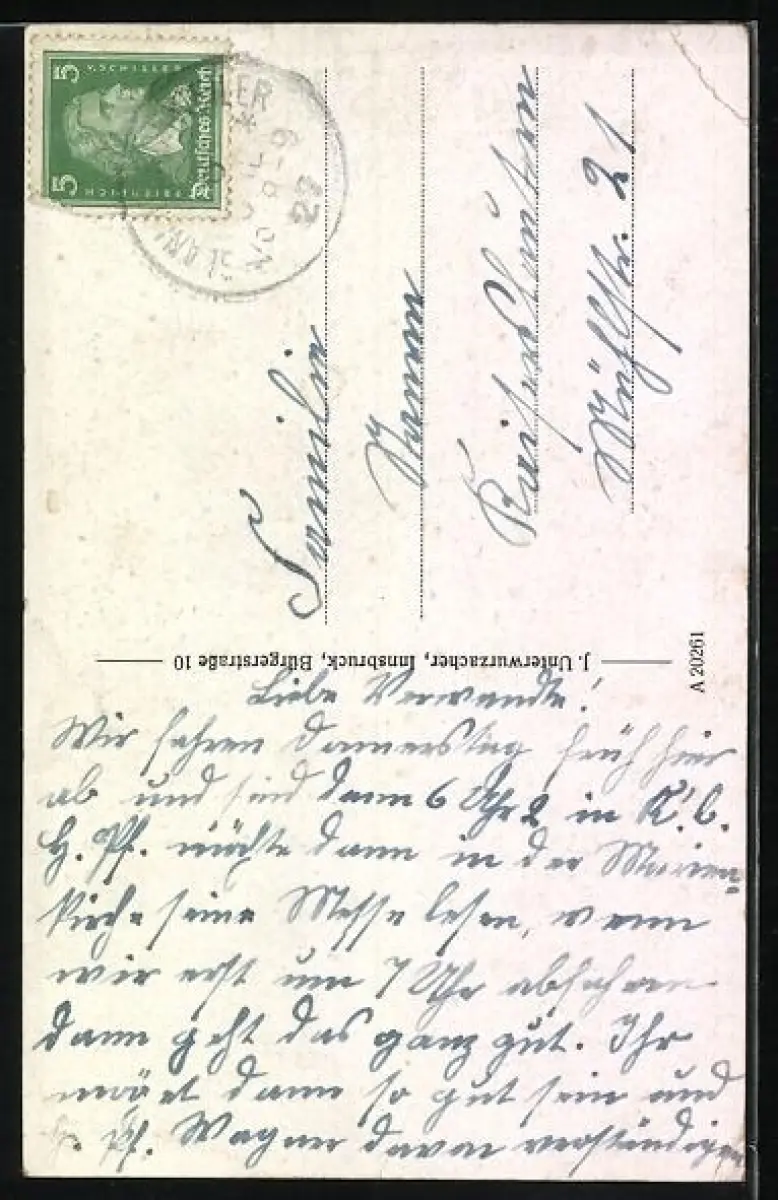 5
5
v. SCHILLER
FRIEDRICH
Deutsches Reich
27
Familie
Kaiserslautern
Mühlstr. 21
J. Unterwurzacher, Innsbruck, Bürgerstraße 10
A 20261
Liebe Verwandte!
Wir fahren Donnerstag früh hier
ab und sind dann 6 Uhr 2 in K'l.
H. Pf. möchte dann in der Marien-
kirche seine Messe lesen, wenn
wir erst um 7 Uhr abfahren
dann geht das ganz gut. Ihr
möget dann so gut sein und
H. Pf. Wagner davon verständigen